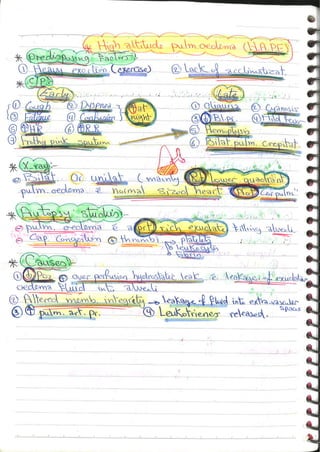 * High altitude pulm. oedema (HAPE)
* Predisposing Factors
① Heavy exertion (exercise) ② Lack of acclimatizat.
* C/P
Early Late
① Cough ② Dyspnea ① Oliguria ② Cyanosis
③ Fatigue ④ Confusion at night ③ ↓ BL.Pr ④
⑤ ↑HR ⑥ ↑RR ⑤ Hemoptysis
⑦ Frothy pink sputum ⑥ Bilat pulm crepitat.
* X-ray
Bilat. Or unilat (mainly Rt lower quadrant
pulm. oedema & normal sized heart Not "cor pulm"
* Autopsy studies
pulm. oedema & a prt rich exudate filling alveoli
Cap. Congestion thrombi platelets
leukocyte
fibrin
* Causes
① ↓ Po2 over perfusion hydrostatic leak & leakage of exudate
oedema Fluid into alveoli
② Altered memb. integrity → leakage of fluid into extra vascular
space
③ ↑ pulm. art. pr. ④ Leukotrienes released.